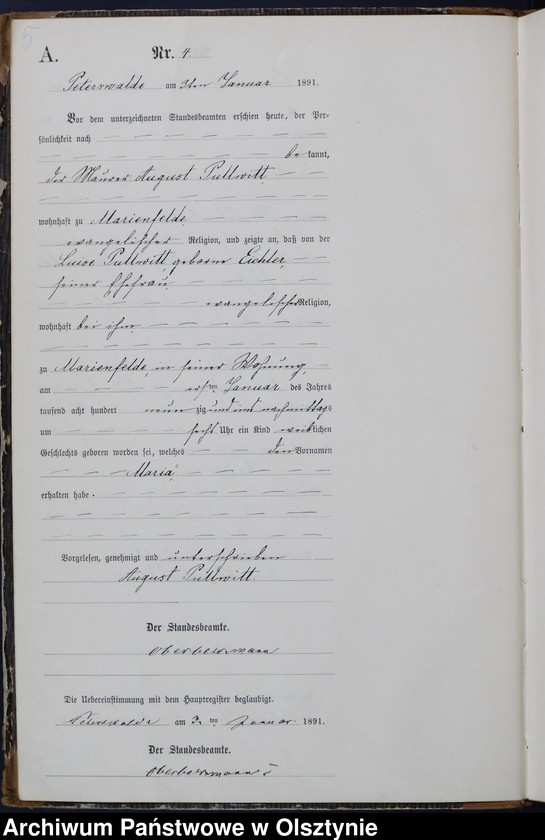 5
A. Nr. 4.
Peterswalde am 3ten Januar 1891.
Vor dem unterzeichneten Standesbeamten erschien heute, der Per-
sönlichkeit nach
be kannt,
der Maurer August Puttwitt
wohnhaft zu Marienfelde
evangelischer Religion, und zeigte an, daß von der
Luise Puttwitt, geborne Eichler,
seiner Ehefrau
evangelischer Religion,
wohnhaft bei ihm
zu Marienfelde, in seiner Wohnung,
am ersten Januar des Jahres
tausend acht hundert neun zig und eins nachmittags
um sechs Uhr ein Kind weiblichen
Geschlechts geboren worden sei, welches den Vornamen
Maria
erhalten habe.
Vorgelesen, genehmigt und unterschrieben
August Puttwitt.
Der Standesbeamte.
Die Uebereinstimmung mit dem Hauptregister beglaubigt.
Peterswalde am 3. ten Januar 1891.
Der Standesbeamte.
Archiwum Państwowe w Olsztynie